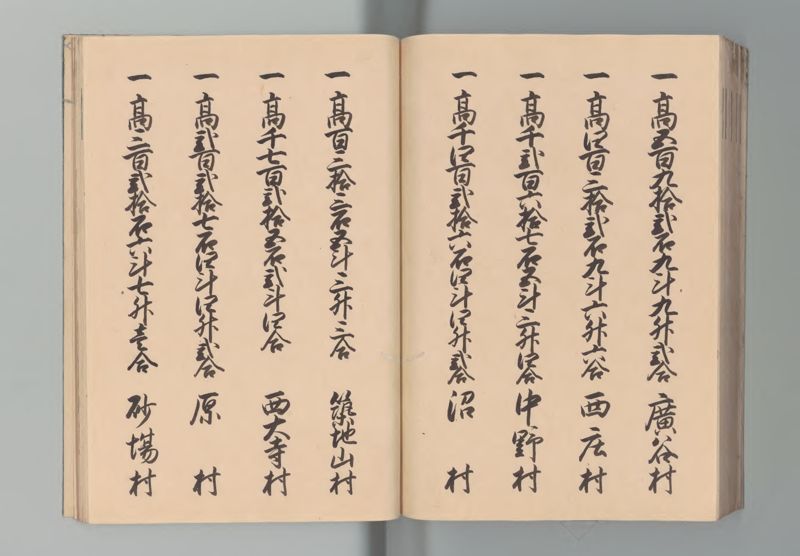 一高五百九拾弐石九斗九升弐合 廣谷村
一高四百三拾弐石九斗六升六合 西庄村
一高千弐百六拾七石五斗三升四合 中野村
一高千四百弐拾六石四斗四升弐合 沼村
一高百三拾三石五斗三升三合 築地山村
一高千七百弐拾五石弐斗四合 西大寺村
一高弐百弐拾七石四斗四升弐合 原村
一高三百弐拾石六斗七升壱合 砂場村